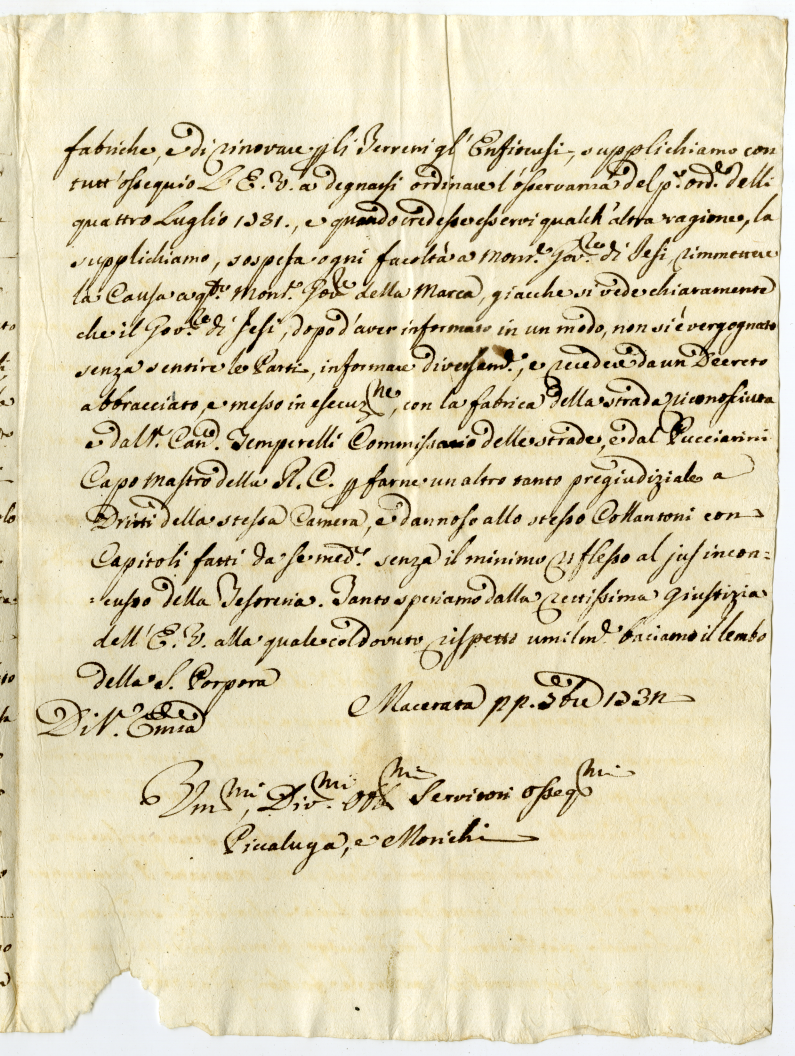 fabriche, e di rinovare p gli Terreni gl' Enfiteusi, supplichiamo con
tutt' ossequio L' E. V. a degnarsi ordinare l' osservanza del p.º ord.e delli
quattro Luglio 1731., e quando credesse esservi qualch' altra ragione, la
supplichiamo, sospesa ogni facoltà a Mons.r Gov.re di Jesi, rimettere
la Causa a q.to Mons.r Gov.re della Marca, giacche si vede chiaramente
che il Gov.re di Jesi, dopo d' aver informato in un modo, non si è vergognato
senza sentire le Parti, informare diversam.e, e recedere da un Decreto
abbracciato, e messo in esecuz.ne, con la fabrica della strada riconosciuta
e dal S. Can.o Temperelli Commissario delle strade, e dal Pucciarini
Capo mastro della R. C. p farne un altro tanto pregiudiziale a
Dritti della stessa Camera, e dannoso allo stesso Collantoni con
Capitoli fatti da se med.º senza il minimo riflesso al jus incon=
=cusso della Tesoreria. Tanto speriamo dalla rettissima Giustizia
dell' E. V. alla quale col dovuto rispetto umilm.e baciamo il lembo
della S. Porpora
Macerata pp. 7bre 1732
Di V. Emza
Um.mi, Div.mi Obb.mi Servitori osseq.mi
Piccaluga, e Morichi